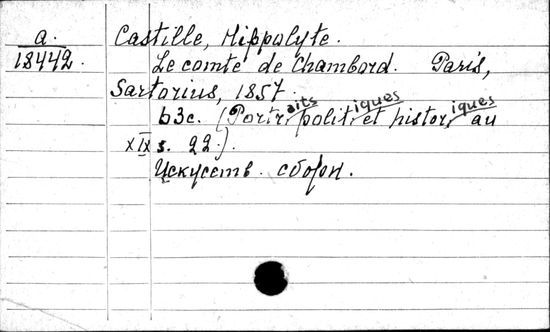 a. Castille, Hippolyte.
18442. Le comte de Chambord. Paris,
Sartorius, 1857.
63c. (Portraits politiques et historiques au
XIX s. 22.).
Искусств. сборн.